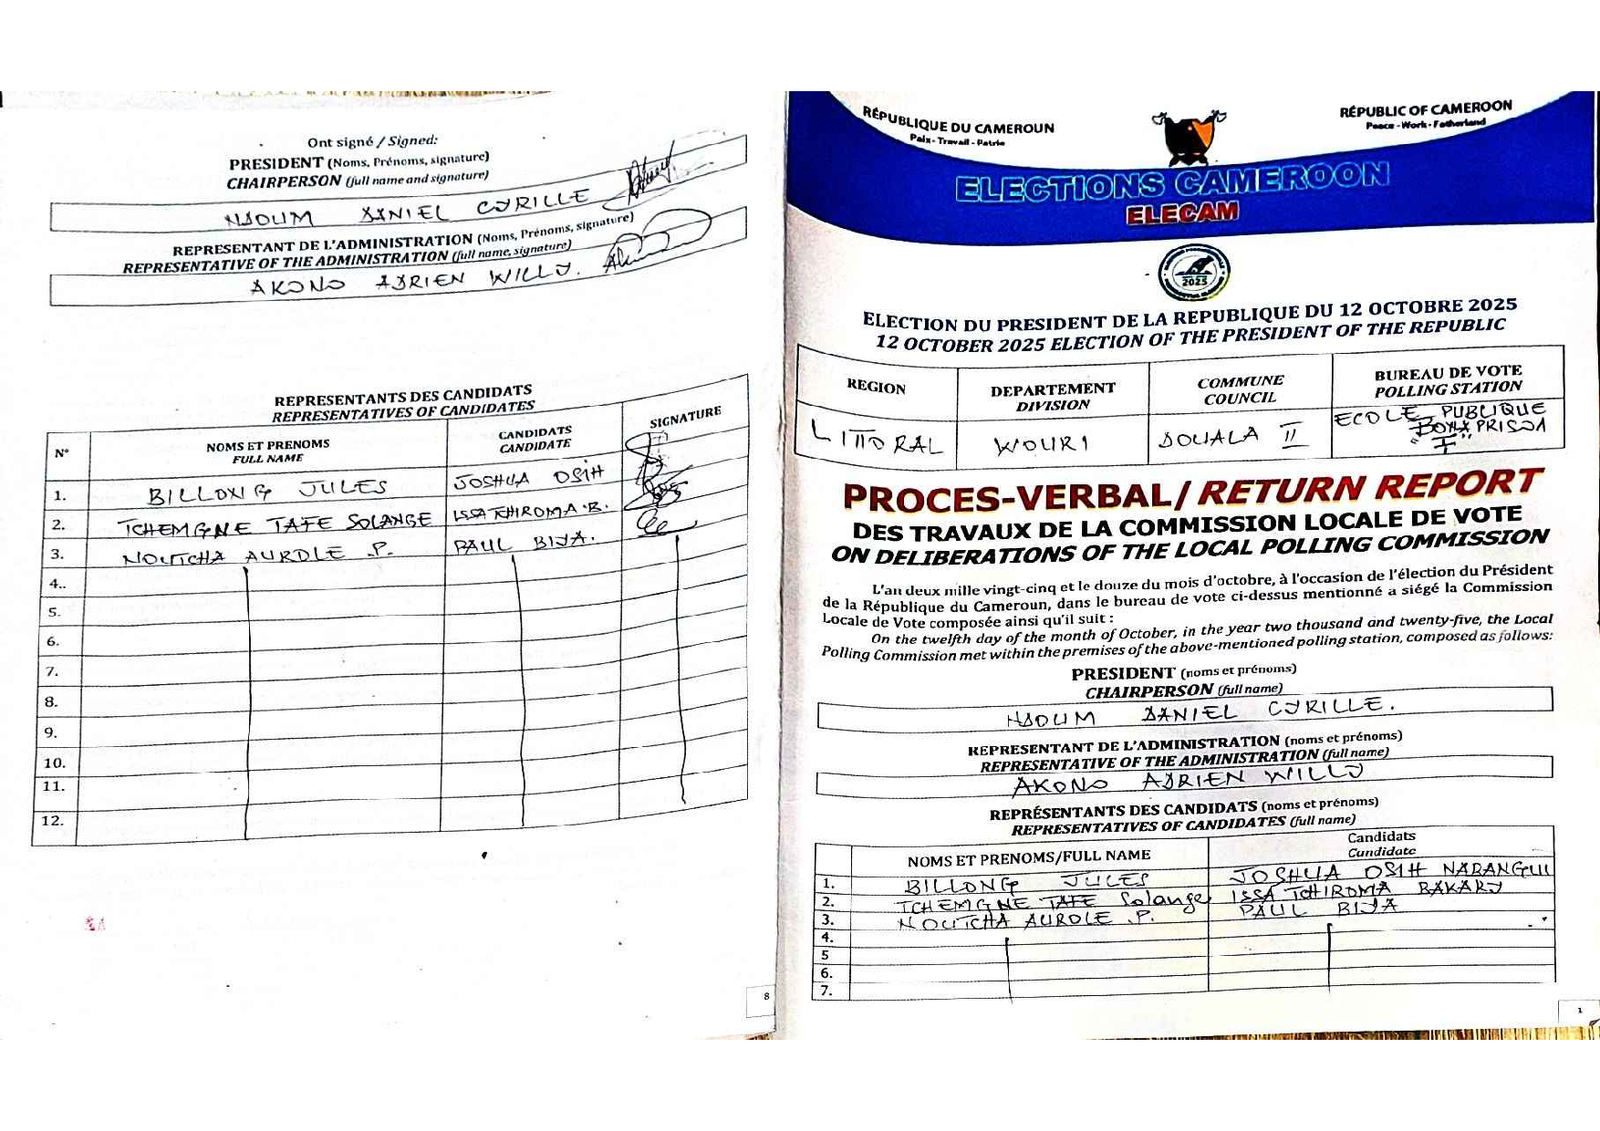 Ont signé / Signed:
PRESIDENT (Noms, Prénoms, signature)
CHAIRPERSON (full name and signature)
NDOUM DANIEL CYRILLE
REPRESENTANT DE L'ADMINISTRATION (Noms, Prénoms, signature)
REPRESENTATIVE OF THE ADMINISTRATION (full name, signature)
AKONO ADRIEN WILLY.
REPRESENTANTS DES CANDIDATS
REPRESENTATIVES OF CANDIDATES
N° NOMS ET PRENOMS CANDIDATS SIGNATURE
FULL NAME CANDIDATE
1. BILLONG JULES JOSHUA OSIH
2. TCHEMGNE TAFE SOLANGE ISSA TCHIROMA .B.
3. NOUTCHA AUROLE .P. PAUL BIYA.
4..
5.
6.
7.
8.
9.
10.
11.
12.
8
RÉPUBLIQUE DU CAMEROUN
Paix - Travail - Patrie
RÉPUBLIC OF CAMEROON
Peace - Work - Fatherland
ELECTIONS CAMEROON
ELECAM
2025
ELECTION DU PRESIDENT DE LA REPUBLIQUE DU 12 OCTOBRE 2025
12 OCTOBER 2025 ELECTION OF THE PRESIDENT OF THE REPUBLIC
REGION DEPARTEMENT COMMUNE BUREAU DE VOTE
DIVISION COUNCIL POLLING STATION
LITTORAL WOURI DOUALA II ECOLE PUBLIQUE
PRISON
"I"
PROCES-VERBAL/ RETURN REPORT
DES TRAVAUX DE LA COMMISSION LOCALE DE VOTE
ON DELIBERATIONS OF THE LOCAL POLLING COMMISSION
L'an deux mille vingt-cinq et le douze du mois d'octobre, à l'occasion de l'élection du Président
de la République du Cameroun, dans le bureau de vote ci-dessus mentionné a siégé la Commission
Locale de Vote composée ainsi qu'il suit :
On the twelfth day of the month of October, in the year two thousand and twenty-five, the Local
Polling Commission met within the premises of the above-mentioned polling station, composed as follows:
PRESIDENT (noms et prénoms)
CHAIRPERSON (full name)
NDOUM DANIEL CYRILLE.
REPRESENTANT DE L'ADMINISTRATION (noms et prénoms)
REPRESENTATIVE OF THE ADMINISTRATION (full name)
AKONO ADRIEN WILLY
REPRÉSENTANTS DES CANDIDATS (noms et prénoms)
REPRESENTATIVES OF CANDIDATES (full name)
NOMS ET PRENOMS/FULL NAME Candidats
Candidate
1. BILLONG JULES JOSHUA OSIH NABANGUI
2. TCHEMGNE TAFE Solange ISSA TCHIROMA BAKARY
3. NOUTCHA AUROLE .P. PAUL BIYA
4.
5
6.
7.
1